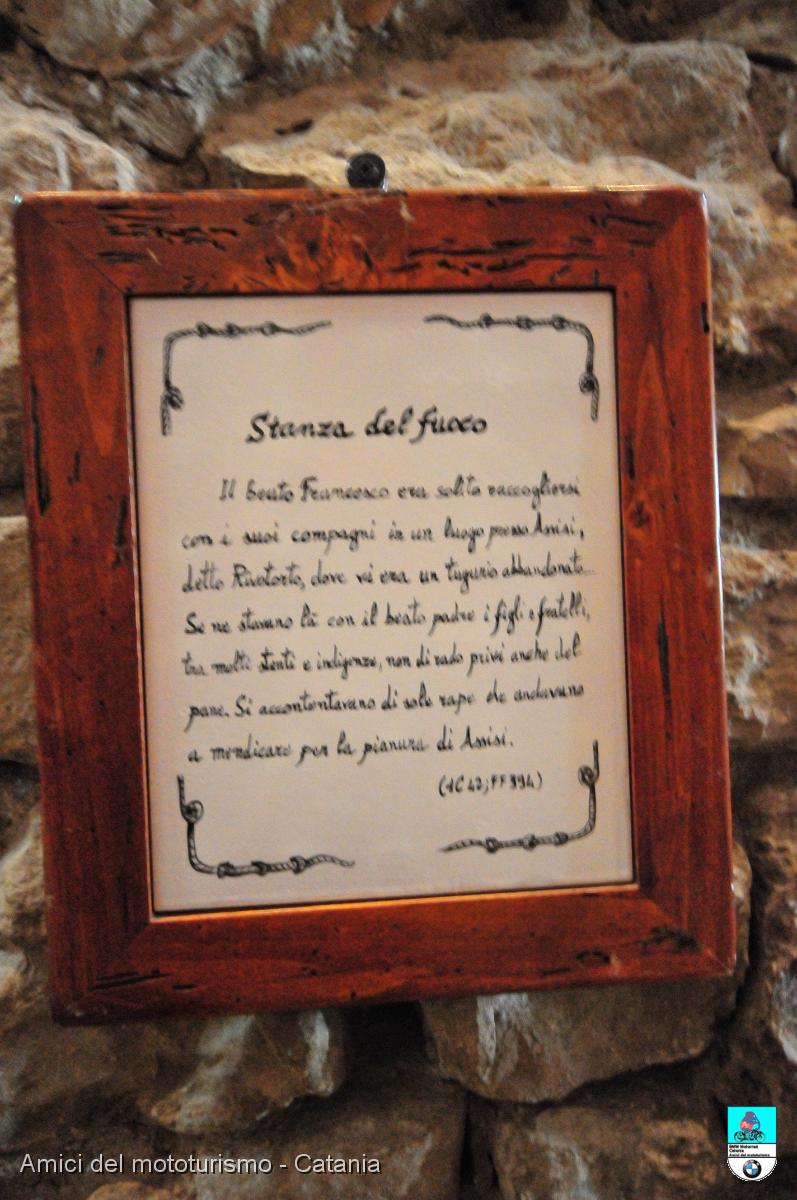 Stanza del fuoco
Il beato Francesco era solito raccogliersi
con i suoi compagni in un luogo presso Assisi,
detto Rivotorto, dove vi era un tugurio abbandonato...
Se ne stavano là con il beato padre i figli e fratelli,
tra molti stenti e indigenze, non di rado privi anche del
pane. Si accontentavano di sole rape che andavano
a mendicare per la pianura di Assisi.
(1C 42; FF 394)
Amici del mototurismo - Catania
BMW Motorrad
Catania
Amici del mototurismo